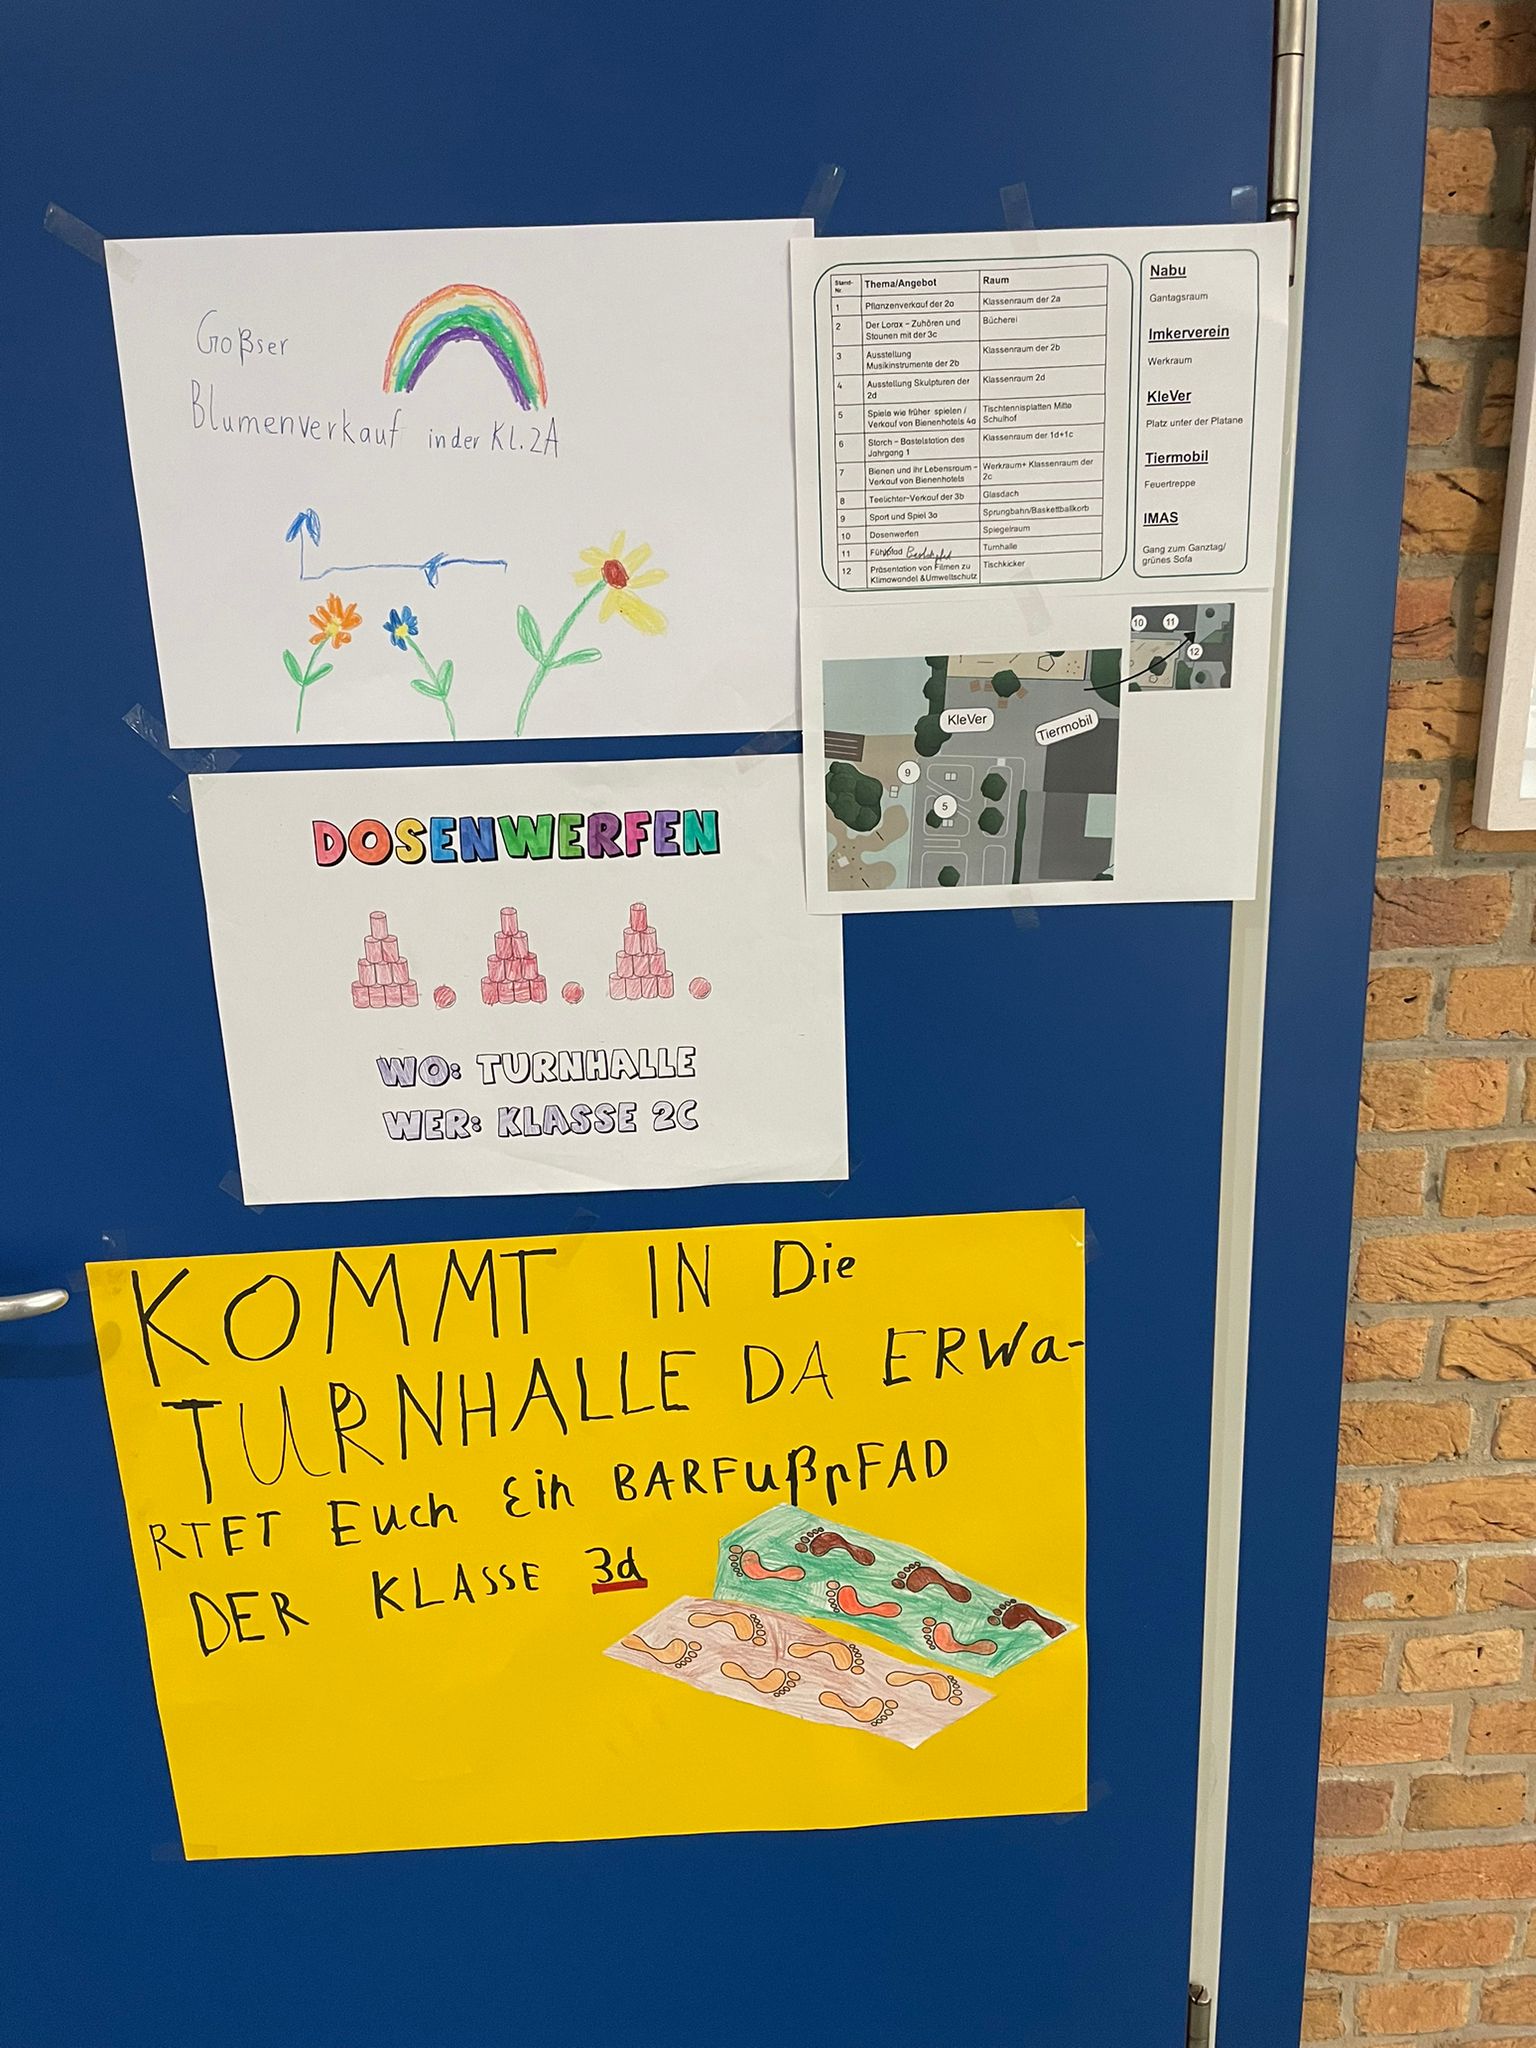 Goßser
Blumenverkauf in der Kl. 2A
Stand-
Nr.
Thema/Angebot
Raum
1
Pflanzenverkauf der 2a
Klassenraum der 2a
2
Der Lorax – Zuhören und
Staunen mit der 3c
Bücherei
3
Ausstellung
Musikinstrumente der 2b
Klassenraum der 2b
4
Ausstellung Skulpturen der
2d
Klassenraum 2d
5
Spiele wie früher spielen /
Verkauf von Bienenhotels 4a
Tischtennisplatten Mitte
Schulhof
6
Storch – Bastelstation des
Jahrgang 1
Klassenraum der 1d+1c
7
Bienen und ihr Lebensraum –
Verkauf von Bienenhotels
Werkraum+ Klassenraum der
2c
8
Teelichter-Verkauf der 3b
Glasdach
9
Sport und Spiel 3a
Sprungbahn/Basketballkorb
10
Dosenwerfen
Spiegelraum
11
Turnhalle
12
Präsentation von Filmen zu
Klimawandel &Umweltschutz
Tischkicker
Nabu
Gantagsraum
Imkerverein
Werkraum
KleVer
Platz unter der Platane
Tiermobil
Feuertreppe
IMAS
Gang zum Ganztag/
grünes Sofa
10
11
12
KleVer
Tiermobil
9
5
DOSENWERFEN
WO: TURNHALLE
WER: KLASSE 2C
KOMMT IN Die
TURNHALLE DA ERWa-
RTET Euch Ein BARFußpFAD
DER KLASSE 3d